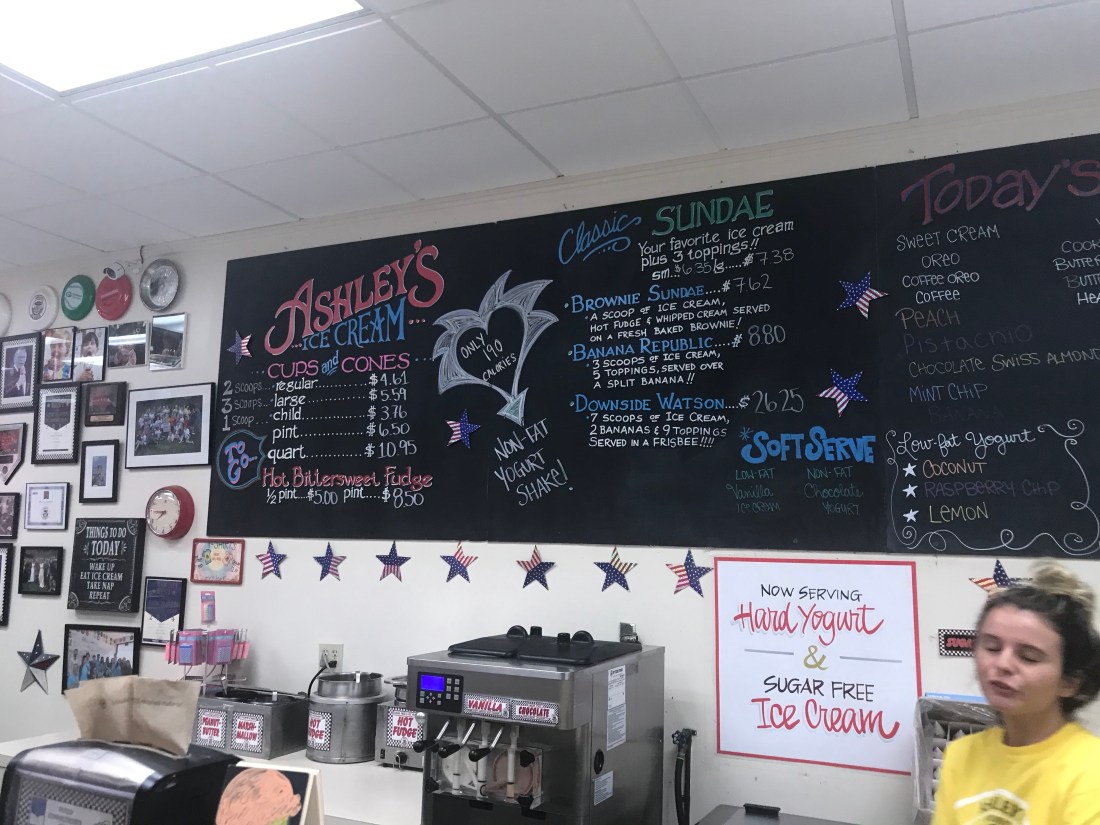 ASHLEY'S
...ICE CREAM...
CUPS and CONES
2 SCOOPS... regular............$4.61
3 SCOOPS... large..............$5.59
1 SCOOP... child..............$3.76
TO GO...
pint..............$6.50
quart..............$10.95
Hot Bittersweet Fudge
½ pint....$5.00 pint....$8.50
ONLY
190
CALORIES
NON-FAT
YOGURT
SHAKE!
Classic SUNDAE
Your favorite ice cream
plus 3 toppings!!
sm..$6.35 lg.....$7.38
BROWNIE SUNDAE....$7.62
A SCOOP OF ICE CREAM,
HOT FUDGE & WHIPPED CREAM SERVED
ON A FRESH BAKED BROWNIE!
BANANA REPUBLIC....$8.80
3 SCOOPS OF ICE CREAM,
5 TOPPINGS, SERVED OVER
A SPLIT BANANA!!
DOWNSIDE WATSON....$26.25
7 SCOOPS OF ICE CREAM,
2 BANANAS & 9 TOPPINGS
SERVED IN A FRISBEE!!!!
SOFT SERVE
LOW-FAT
Vanilla
ICE CREAM
NON-FAT
Chocolate
YOGURT
TODAY'S
SWEET CREAM
OREO
COFFEE OREO
COFFEE
PEACH
Pistachio
CHOCOLATE SWISS ALMOND
MINT CHIP
COOK
BUTTER
BUTT
HEA
Low-fat Yogurt
COCONUT
RASPBERRY CHIP
LEMON
THINGS TO DO
TODAY
WAKE UP
EAT ICE CREAM
TAKE NAP
REPEAT
NOW SERVING
Hard Yogurt
&
SUGAR FREE
Ice Cream
SUGA
PEANUT
BUTTER
MARSH-
MALLOW
HOT
FUDGE
HOT
FUDGE
VANILLA
CHOCOLATE